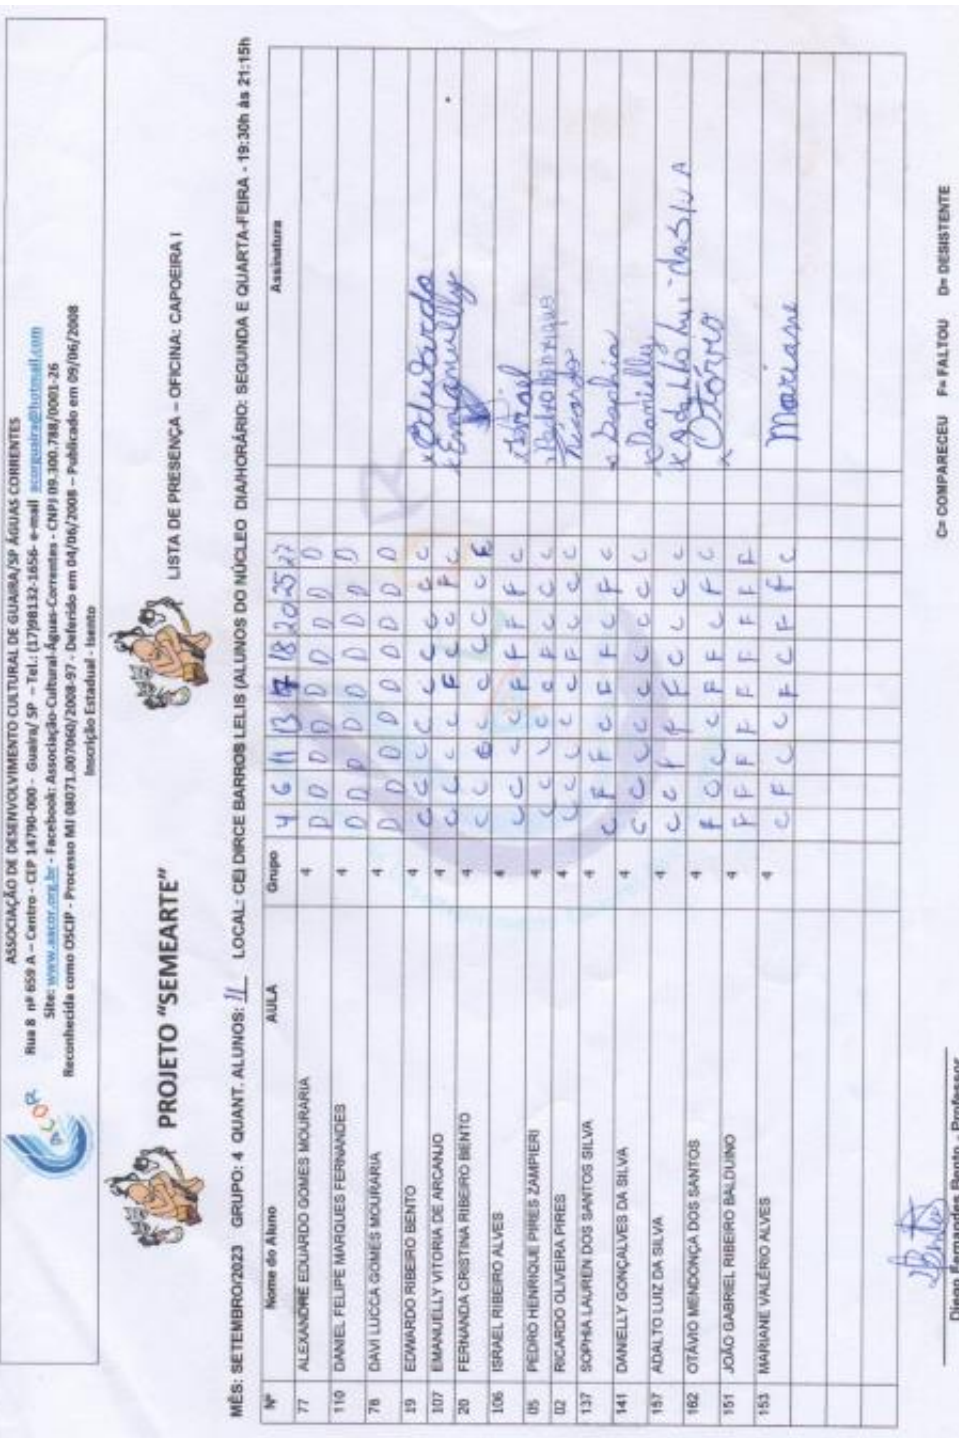 ASSOCIAÇÃO DE DESENVOLVIMENTO CULTURAL DE GUAIRA/SP ÁGUAS CORRENTES
Rua 8 nº 659 A – Centro - CEP 14790-000 - Guaira/ SP – Tel.: (17)98132-1656- e-mail ascorguaira@hotmail.com
Site: www.ascor.org.br - Facebook: Associação-Cultural-Águas-Correntes - CNPJ 09.300.788/0001-26
Reconhecida como OSCIP - Processo MJ 08071.007060/2008-97 - Deferido em 04/06/2008 – Publicado em 09/06/2008
Inscrição Estadual - Isento
PROJETO "SEMEARTE" LISTA DE PRESENÇA – OFICINA: CAPOEIRA I
MÊS: SETEMBRO/2023 GRUPO: 4 QUANT. ALUNOS: 11 LOCAL: CEI DIRCE BARROS LELIS (ALUNOS DO NÚCLEO DIA/HORÁRIO: SEGUNDA E QUARTA-FEIRA - 19:30h às 21:15h
Nº Nome do Aluno AULA Grupo 4 6 11 13 18 20 25 27 Assinatura
77 ALEXANDRE EDUARDO GOMES MOURARIA 4 D D D D D D D D D
110 DANIEL FELIPE MARQUES FERNANDES 4 D D D D D D D D D
78 DAVI LUCCA GOMES MOURARIA 4 D D D D D D D D D
19 EDWARDO RIBEIRO BENTO 4 C C C C C C C C C Eduardo
107 EMANUELLY VITORIA DE ARCANJO 4 C C C C F C C F C Emanuelly
20 FERNANDA CRISTINA RIBEIRO BENTO 4
106 ISRAEL RIBEIRO ALVES 4 C C C C F F C F C Israel
05 PEDRO HENRIQUE PIRES ZAMPIERI 4
02 RICARDO OLIVEIRA PIRES 4 Ricardo
137 SOPHIA LAUREN DOS SANTOS SILVA 4 Sophia
141 DANIELLY GONÇALVES DA SILVA 4 C C C C C C C C C Danielly
157 ADALTO LUIZ DA SILVA 4 da SILVA
162 OTÁVIO MENDONÇA DOS SANTOS 4 F C C C F F C F C Otávio
151 JOÃO GABRIEL RIBEIRO BALDUINO 4 F F F F F F F F F
153 MARIANE VALÉRIO ALVES 4 C F C C F C F F C Mariane
C= COMPARECEU F= FALTOU D= DESISTENTE
Diego Fernandes Bento - Professor